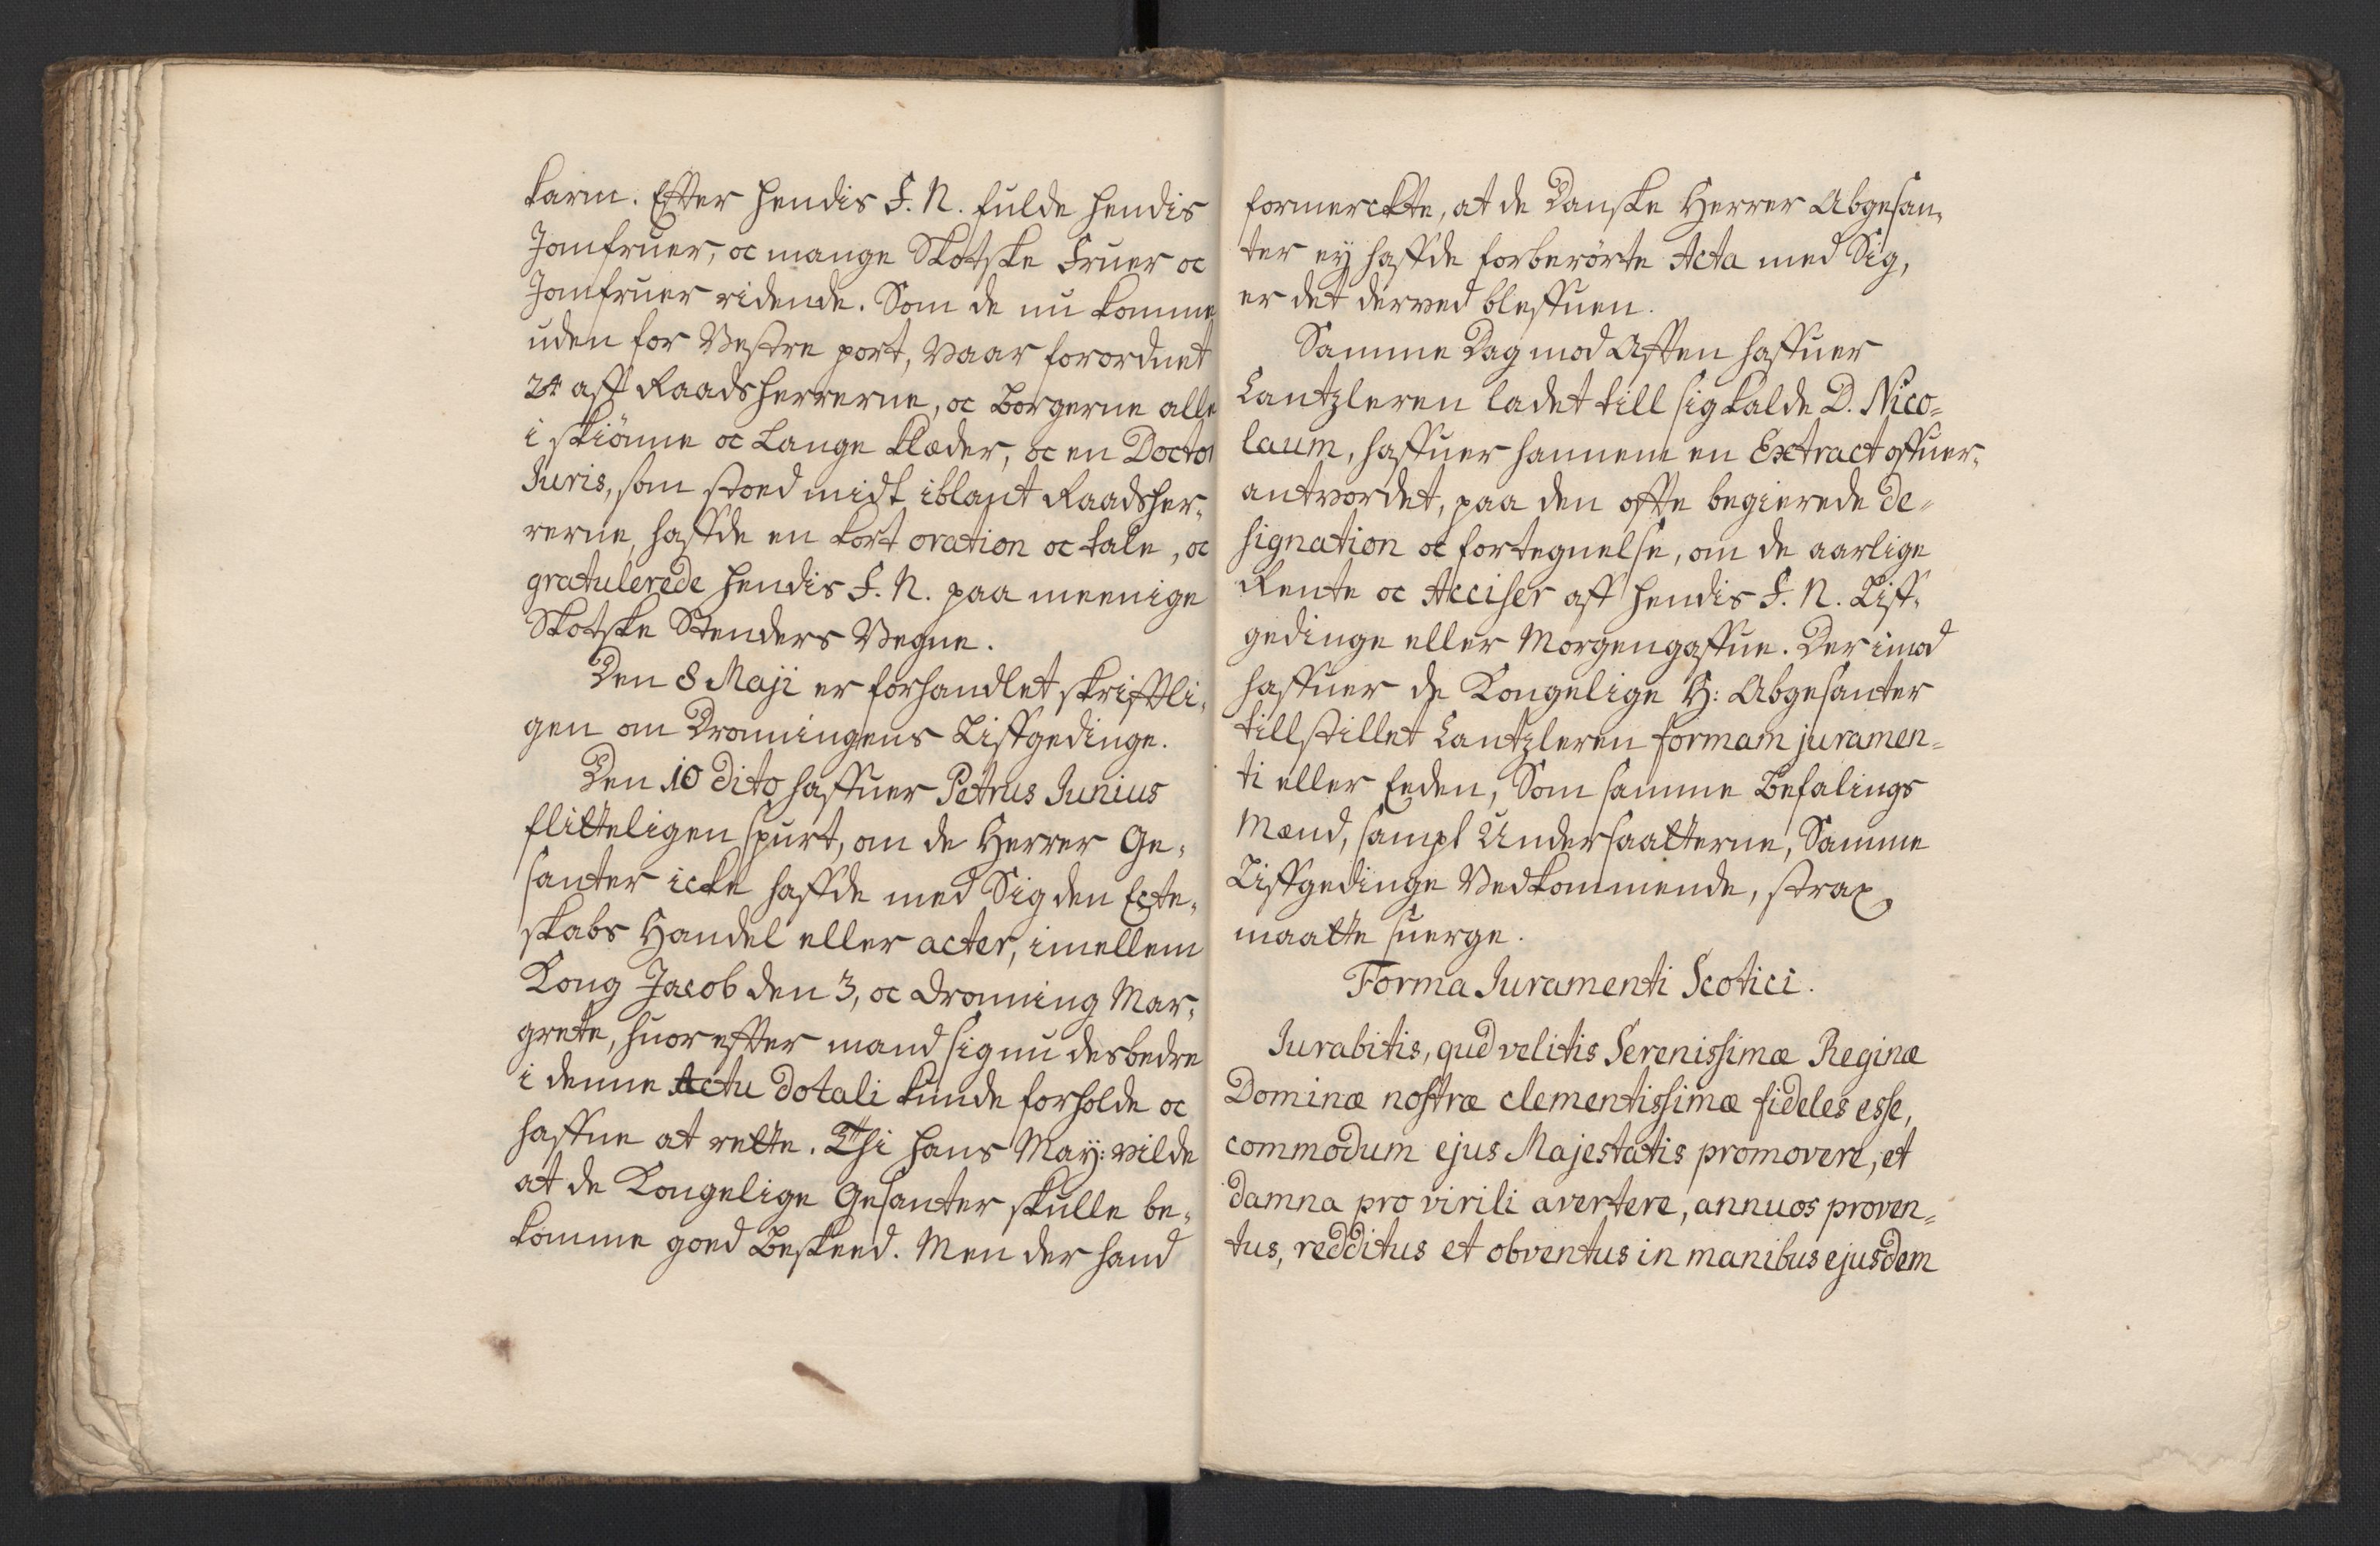 karm. Effter hendis F. N. fulde hendis
Jomfruer, oc mange Skotske Fruer oc
Jomfruer ridende. Som de nu komme
uden for Vestre port, vaar forordnet
24 aff Raadsherrerne, oc Borgerne alle
i skiönne oc Lange klæder, oc en Doctor
Juris, som stoed midt iblant Raadsher-
rerne, haffde en kort oration oc tale, oc
gratulerede hendis F. N. paa meenige
Skotske Stenders Vegne.
Den 8 Maji er forhandlet skrifftli-
gen om Dronningens Liffgedinge.
Den 10 dito haffuer Petrus Junius
flitteligen spurt, om de Herrer Ge-
santer icke haffde med Sig den Ecte-
skabs Handel eller acter, imellem
Kong Jacob den 3, oc Dronning Mar-
grete, huorefter mand sig nu desbedre
i denne Actu dotali kunde forholde oc
haffue at rette. Thi hans May: vilde
at de Kongelige Gesanter skulle be-
komme goed Beskeed. Men der hand
formerckte, at de Danske Herrer Abgesan-
ter ey haffde forberörte Acta med Sig,
er det derved bleffuen.
Samme Dag mod Afften haffuer
Cantzleren ladet till sig kalde D. Nico=
laum, haffuer hannem en Extract offuer-
antvordet, paa den offte begierede de-
signation oc fortegnelse, om de aarlige
Rente oc Acciser aff hendis F. N. Liff-
gedinge eller Morgengaffue. Der imod
haffuer de Kongelige H: Abgesanter
tillstillet Cantzleren formam juramen=
ti eller Eeden, Som samme Befalings
Mænd, sampt Undersaatterne, Samme
Liffgedinge Vedkommende, strax
maatte suerge.
Forma Juramenti Scotici.
Jurabitis, qud velitis Serenissimæ Reginæ
Dominæ nostræ clementissimæ fideles esse,
commodum ejus Majestatis promovere, et
damna pro virili avertere, annuos proven=
tus, redditus et obventus in manibus ejusdem